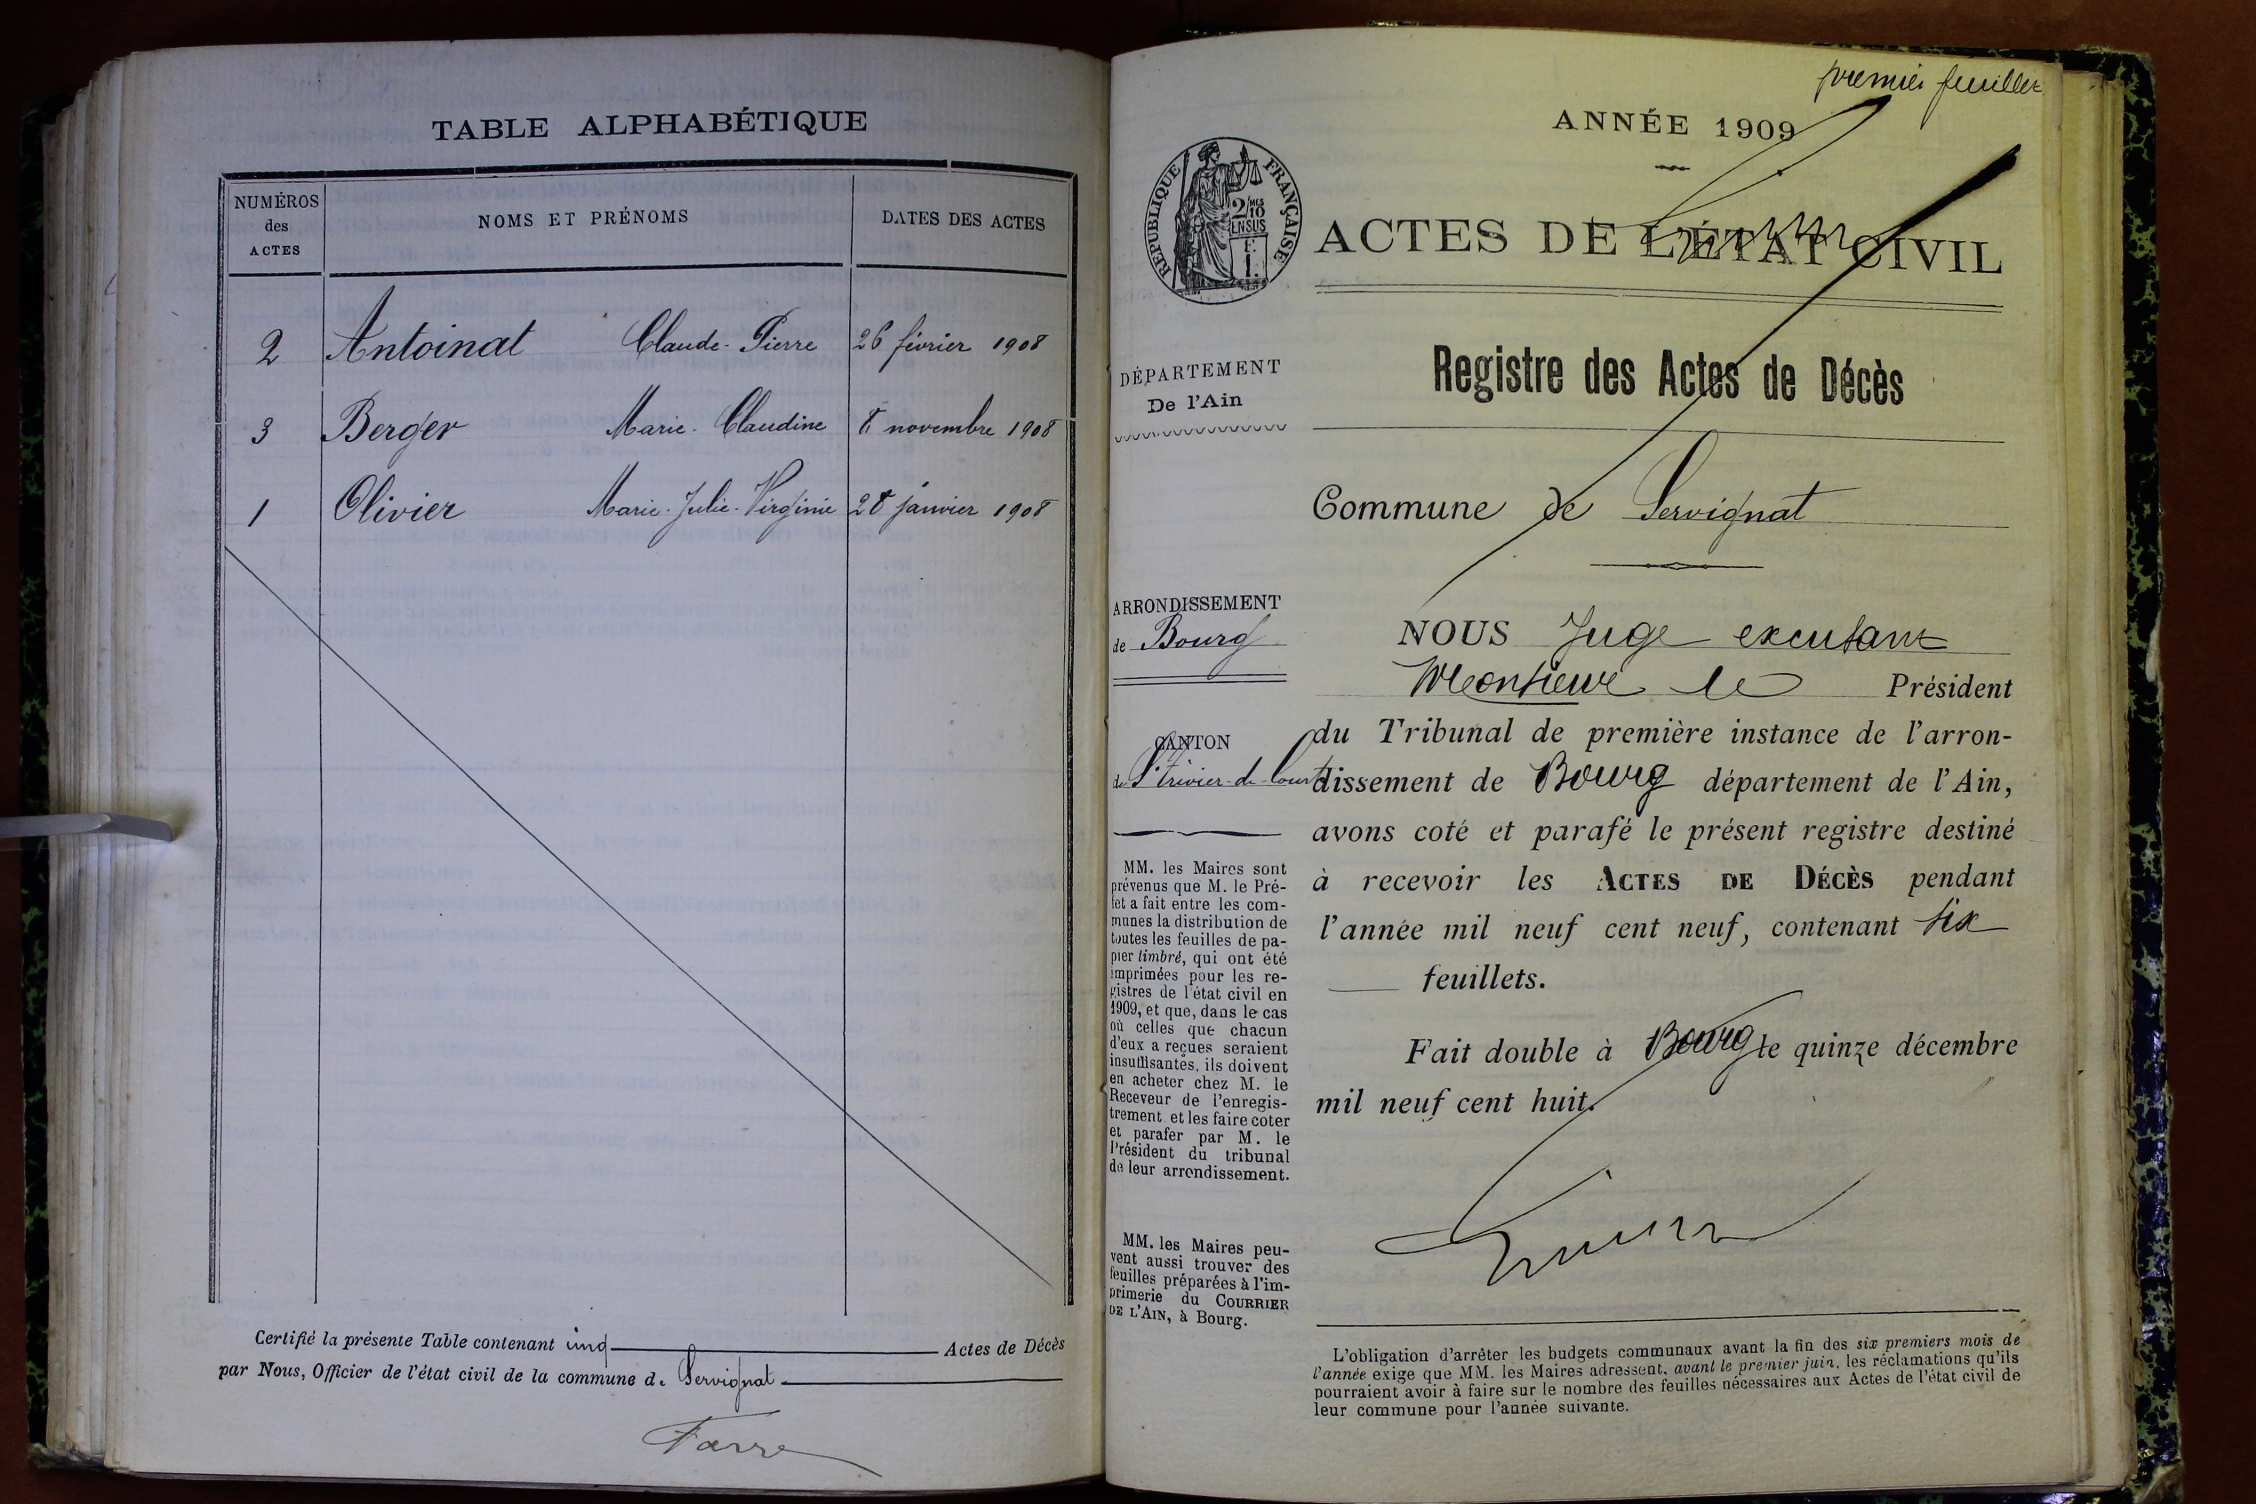 TABLE ALPHABÉTIQUE
NUMÉROS
des
ACTES
NOMS ET PRÉNOMS
DATES DES ACTES
2 Antoinat Claude-Pierre 26 février 1908
3 Berger Marie-Claudine 8 novembre 1908
1 Olivier Marie-Julie-Virginie 28 janvier 1908
Certifié la présente Table contenant cinq Actes de Décès
par Nous, Officier de l'état civil de la commune de Servignat
Farre
premier feuillet
ANNÉE 1909
RÉPUBLIQUE FRANÇAISE
2/10
EN SUS
ACTES DE L'ÉTAT CIVIL
DÉPARTEMENT
De l'Ain
Registre des Actes de Décès
Commune de Servignat
ARRONDISSEMENT
de Bourg
CANTON
de St Trivier-de-Courtes
MM. les Maires sont
prévenus que M. le Pré-
fet a fait entre les com-
munes la distribution de
toutes les feuilles de pa-
pier timbré, qui ont été
imprimées pour les re-
gistres de l'état civil en
1909, et que, dans le cas
où celles que chacun
d'eux a reçues seraient
insuffisantes, ils doivent
en acheter chez M. le
Receveur de l'enregis-
trement et les faire coter
et parafer par M. le
Président du tribunal
de leur arrondissement.
MM. les Maires peu-
vent aussi trouver des
feuilles préparées à l'im-
primerie du COURRIER
DE L'AIN, à Bourg.
NOUS Juge excusant
Monsieur le Président
du Tribunal de première instance de l'arron-
dissement de Bourg département de l'Ain,
avons coté et parafé le présent registre destiné
à recevoir les ACTES DE DÉCÈS pendant
l'année mil neuf cent neuf, contenant six
feuillets.
Fait double à Bourg le quinze décembre
mil neuf cent huit.
L'obligation d'arrêter les budgets communaux avant la fin des six premiers mois de
l'année exige que MM. les Maires adressent, avant le premier juin, les réclamations qu'ils
pourraient avoir à faire sur le nombre des feuilles nécessaires aux Actes de l'état civil de
leur commune pour l'année suivante.